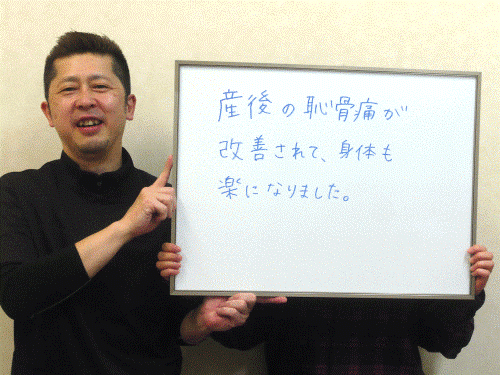 産後の恥骨痛が
改善されて、身体も
楽になりました。